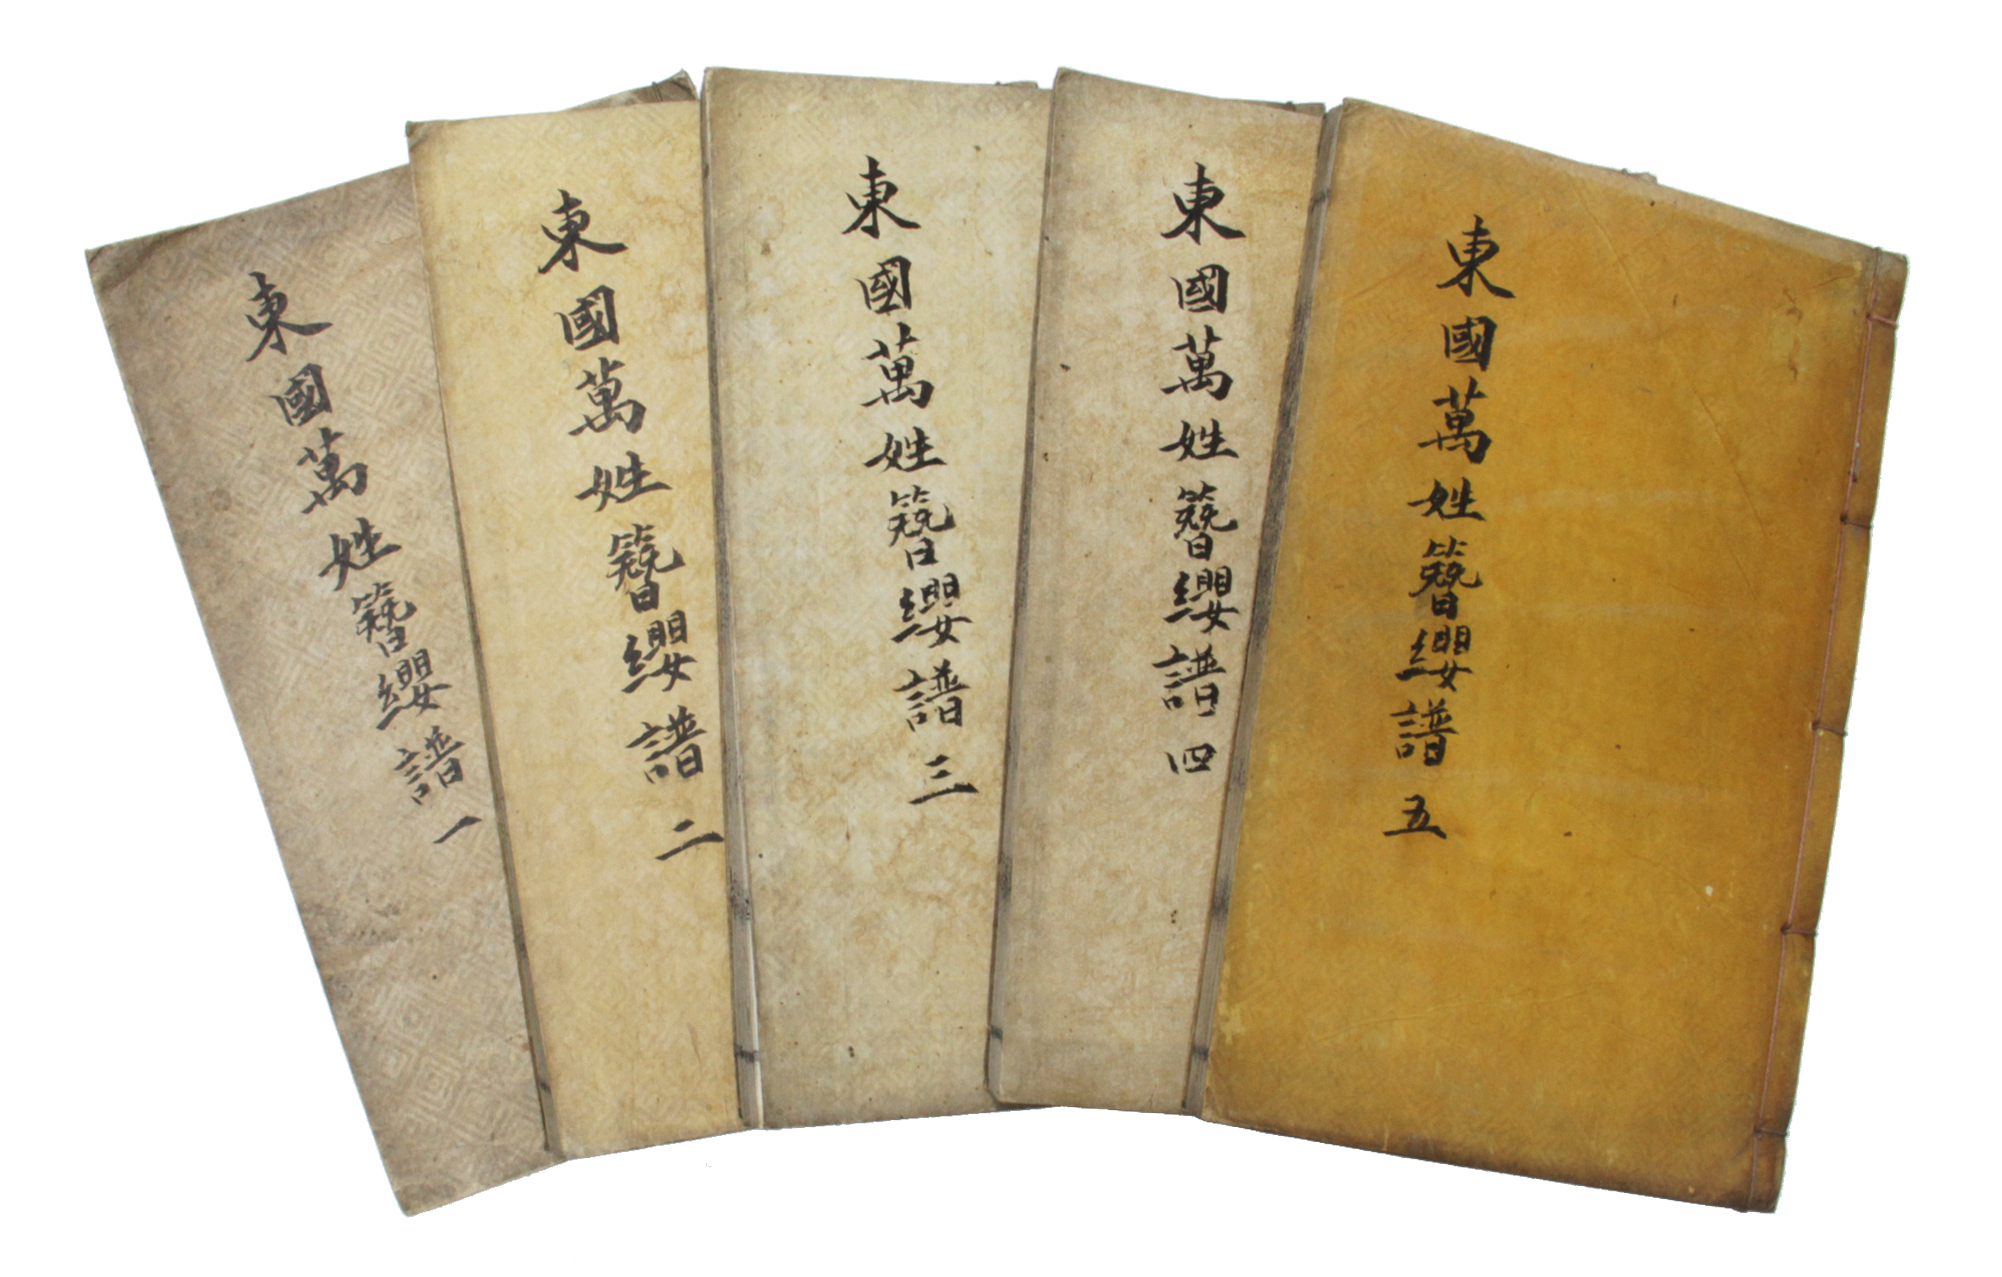 東國萬姓簪纓譜 一
東國萬姓簪纓譜 二
東國萬姓簪纓譜 三
東國萬姓簪纓譜 四
東國萬姓簪纓譜 五